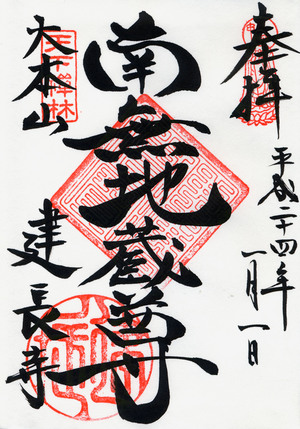 奉拝
平成二十四年
一月一日
南無地蔵尊
天下禅林
大本山
建長寺